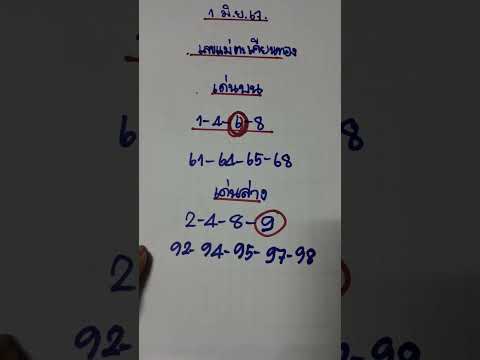 1 มิ.ย. 67
เลขแม่ตะเคียนทอง
เด่นบน
1-4-6-8
61-64-65-68
เด่นล่าง
2-4-8-9
92-94-95-97-98